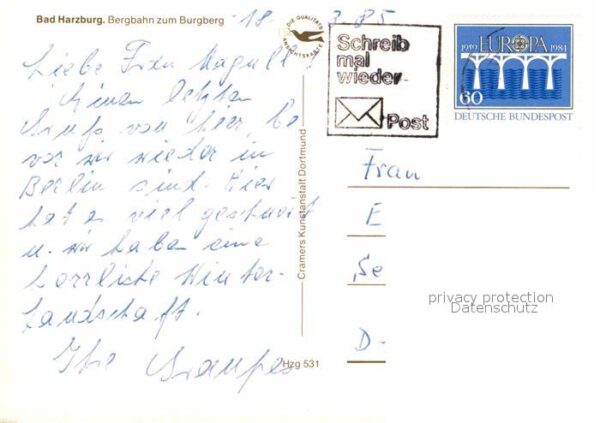 Bad Harzburg. Bergbahn zum Burgberg
18. 3. 85
DIE QUALITÄTS
ANSICHTSKARTE
Schreib
mal
wieder
Post
1959 EUROPA 1984
60
DEUTSCHE BUNDESPOST
Liebe Frau
Einen letzten
Gruß von hier, be-
vor wir wieder in
Berlin sind. Hier
hat es viel geschneit
u. wir haben eine
herrliche Winter-
landschaft.
Ihre
Cramers Kunstanstalt Dortmund
Hzg 531
Frau
E
Se
D-
privacy protection
Datenschutz